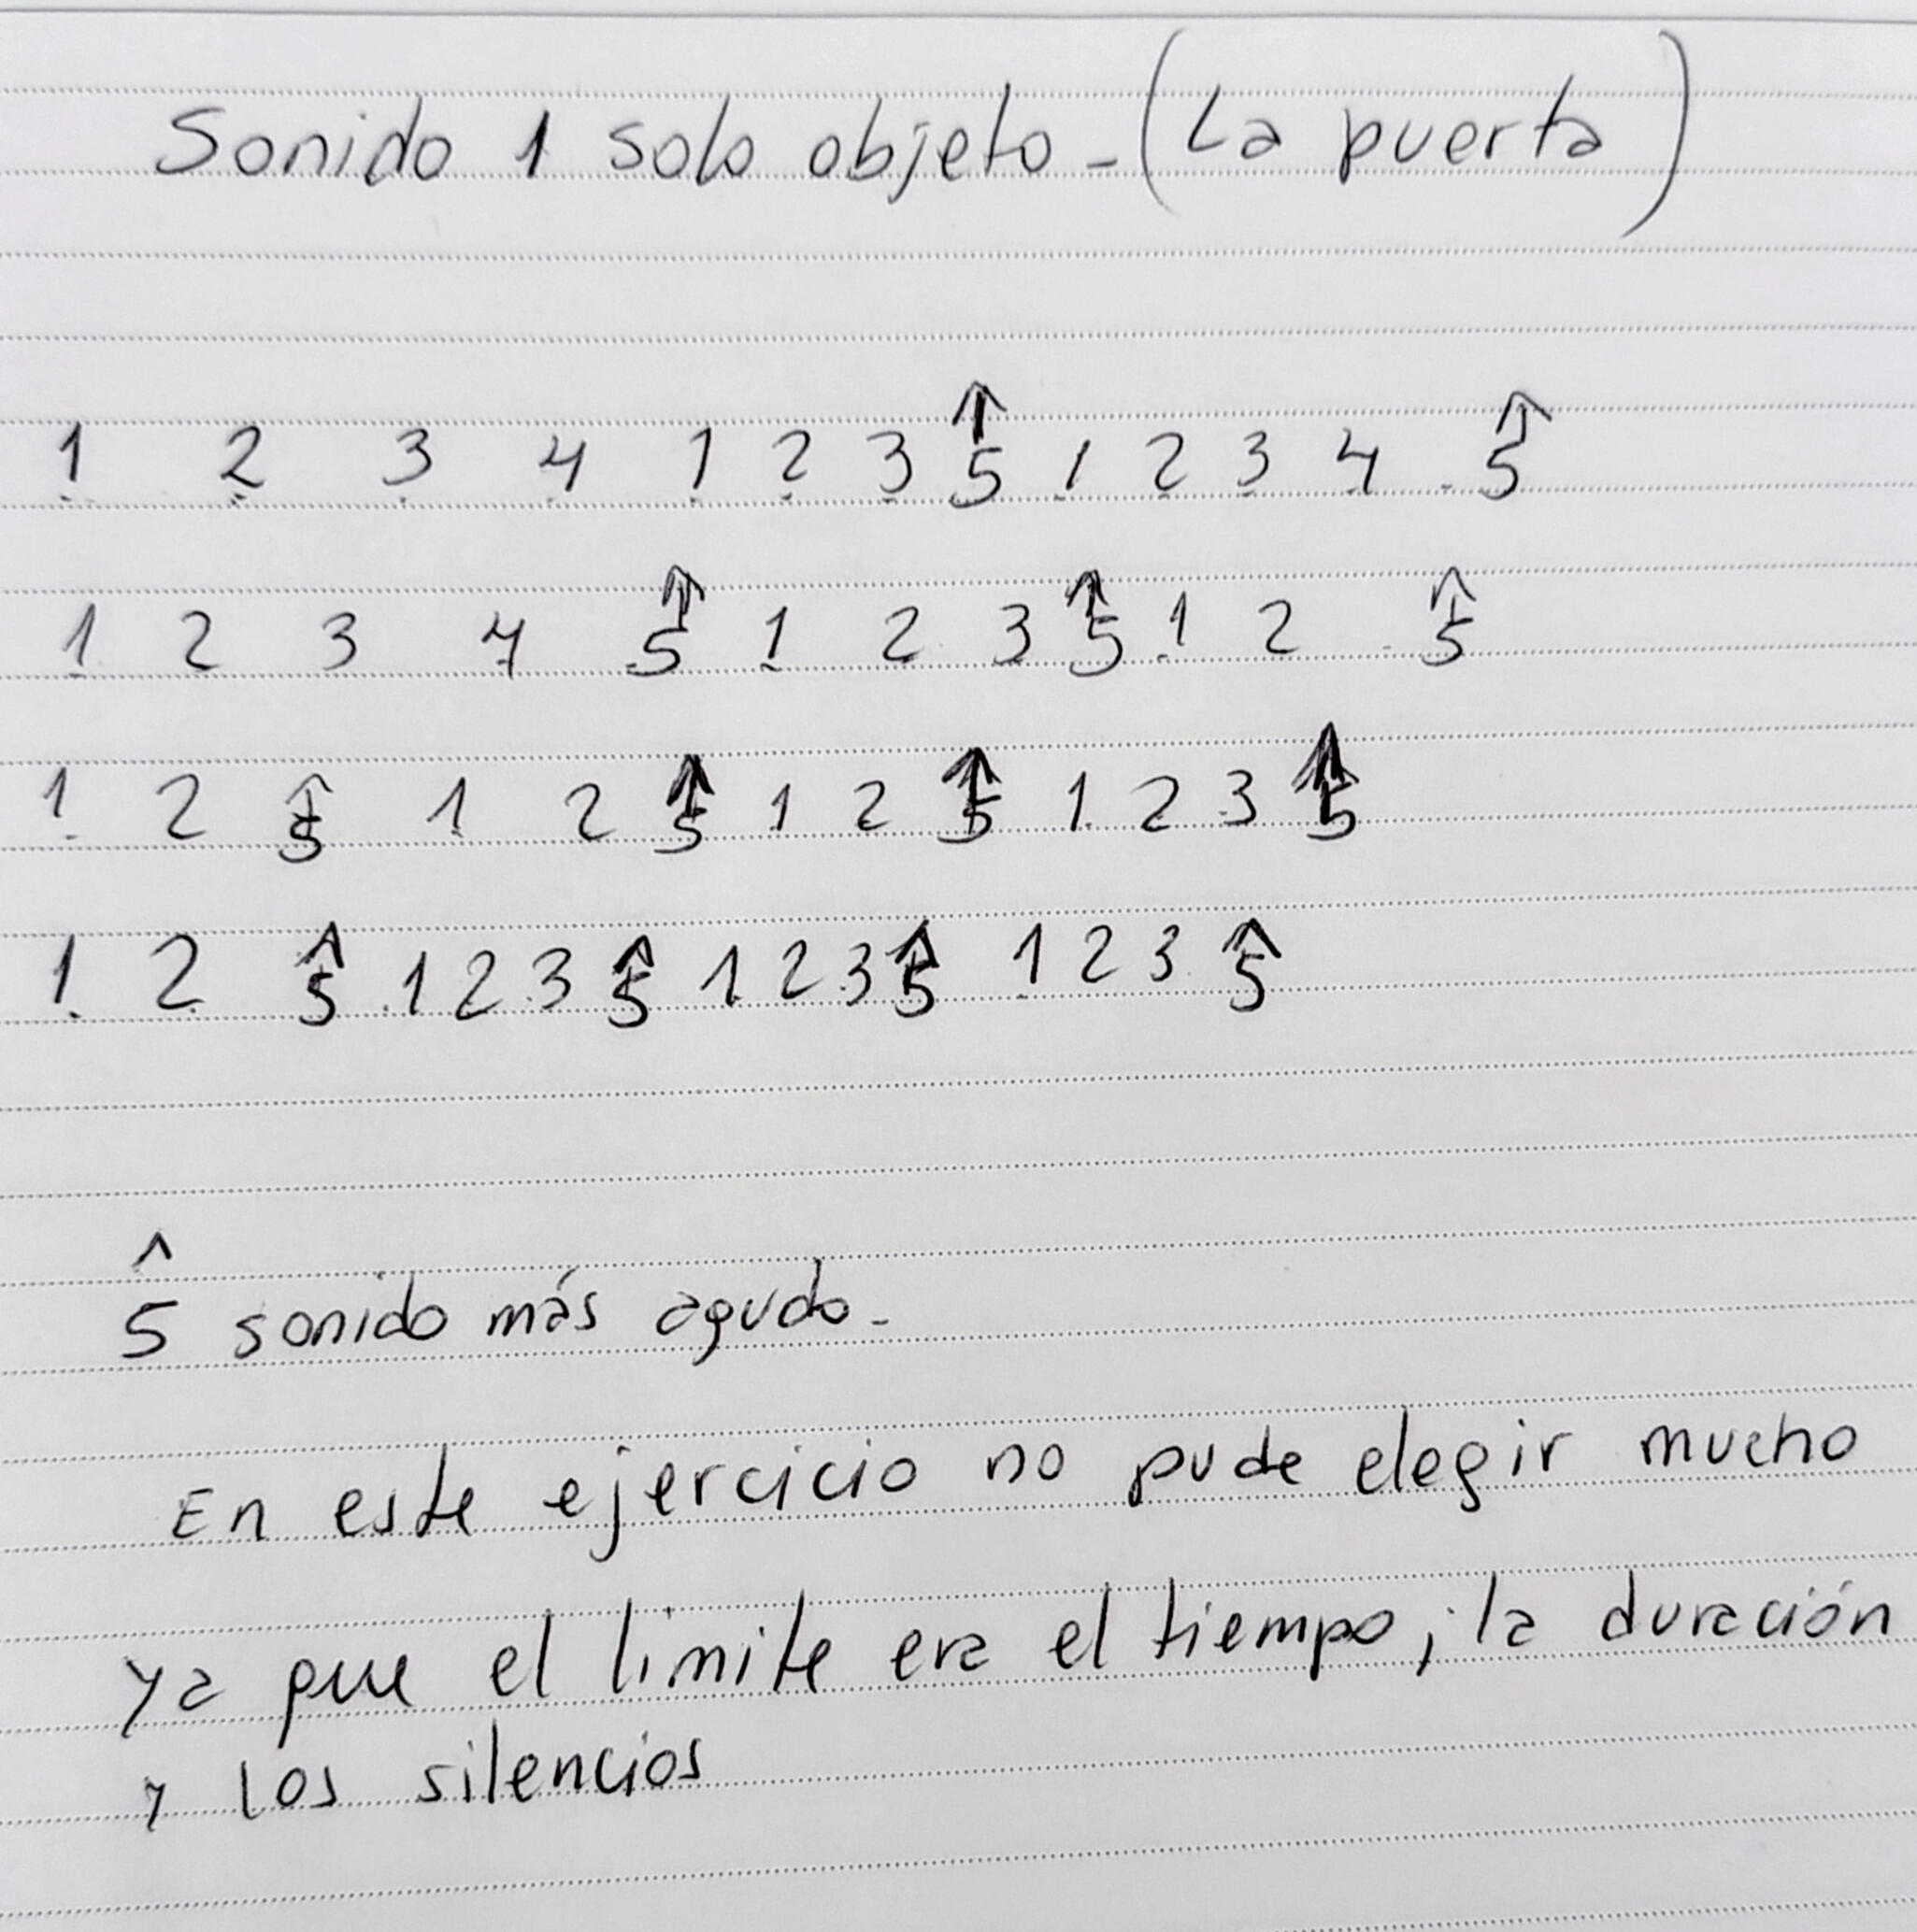 Sonido 1 solo objeto - (La puerta)
1 2 3 4 1 2 3 ↑5 1 2 3 4 ↑5
1 2 3 4 ↑5 1 2 3 ↑5 1 2 ↑5
1 2 ↑5 1 2 ↑5 1 2 ↑5 1 2 3 ↑5
1 2 ↑5 1 2 3 ↑5 1 2 3 ↑5 1 2 3 ↑5
^
5 sonido más agudo.
En este ejercicio no pude elegir mucho
ya que el limite era el tiempo, la duración
y los silencios